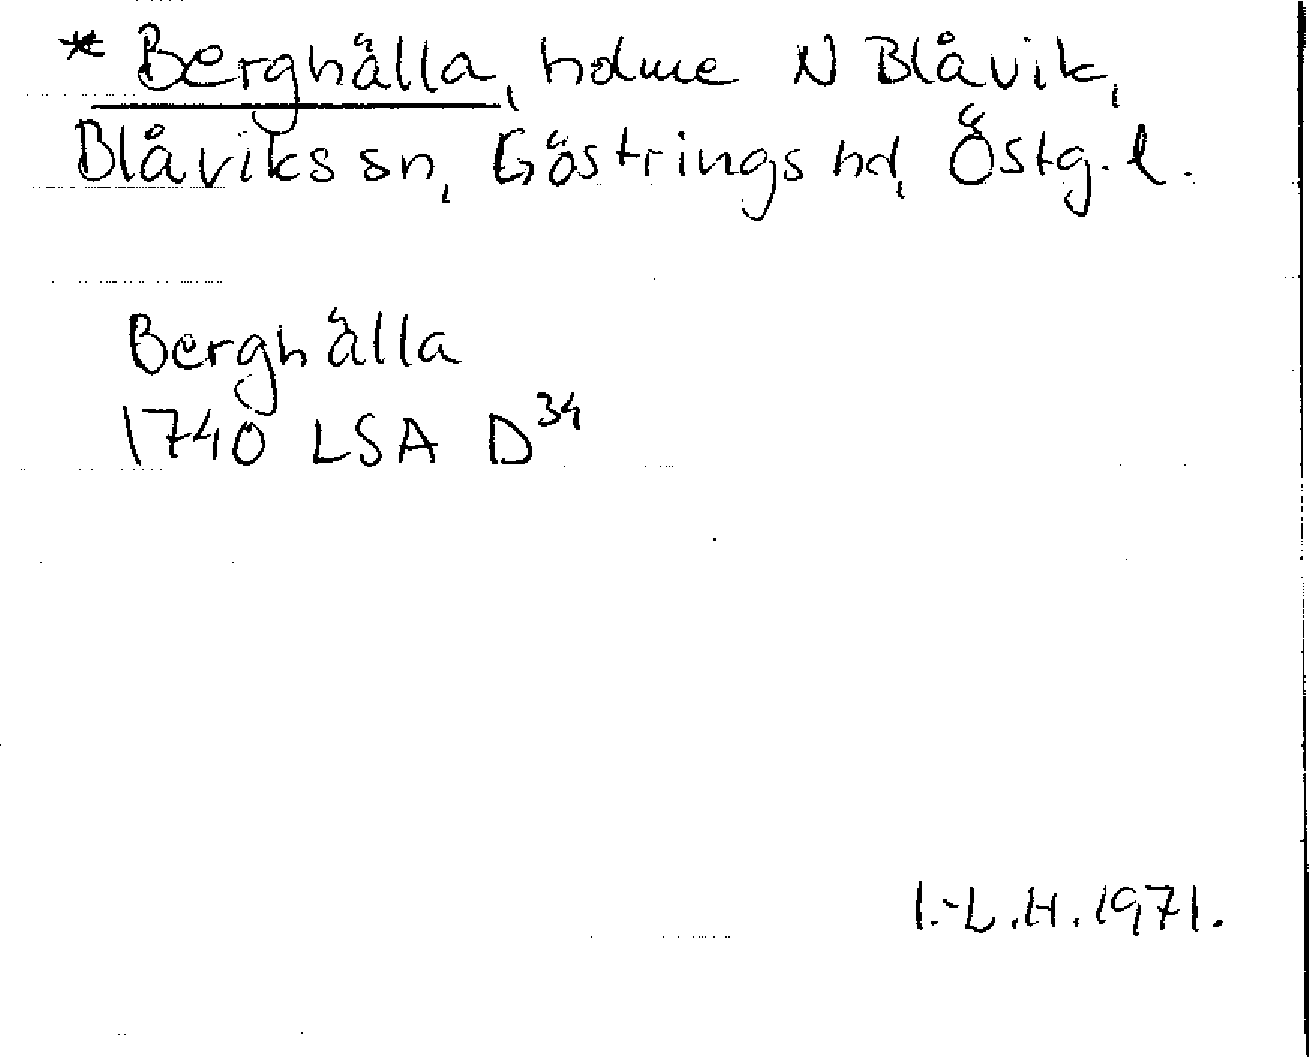 * Berghälla, holme N Blåvik,
Blåviks sn, Göstrings hd, Östg. l.
Berghälla
1740 LSA D³⁴
I.-L.H. 1971.